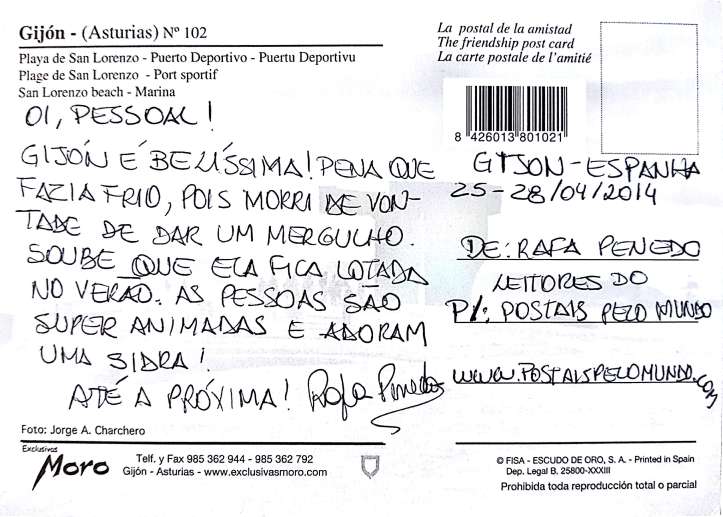 Gijón - (Asturias) Nº 102
Playa de San Lorenzo - Puerto Deportivo - Puertu Deportivu
Plage de San Lorenzo - Port sportif
San Lorenzo beach - Marina
La postal de la amistad
The friendship post card
La carte postale de l'amitié
8 426013 801021
OI, PESSOAL!
GIJÓN É BELÍSSIMA! PENA QUE
FAZIA FRIO, POIS MORRI DE VON-
TADE DE DAR UM MERGULHO.
SOUBE QUE ELA FICA LOTADA
NO VERÃO. AS PESSOAS SÃO
SUPER ANIMADAS E ADORAM
UMA SIDRA!
ATÉ A PRÓXIMA! Rafa Penedo
GIJON - ESPANHA
25 - 28/04/2014
DE: RAFA PENEDO
LEITORES DO
P/: POSTAIS PELO MUNDO
WWW.POSTAISPELOMUNDO.COM
Foto: Jorge A. Charchero
Exclusivas
Moro
Telf. y Fax 985 362 944 - 985 362 792
Gijón - Asturias - www.exclusivasmoro.com
© FISA - ESCUDO DE ORO, S. A. - Printed in Spain
Dep. Legal B. 25800-XXXIII
Prohibida toda reproducción total o parcial